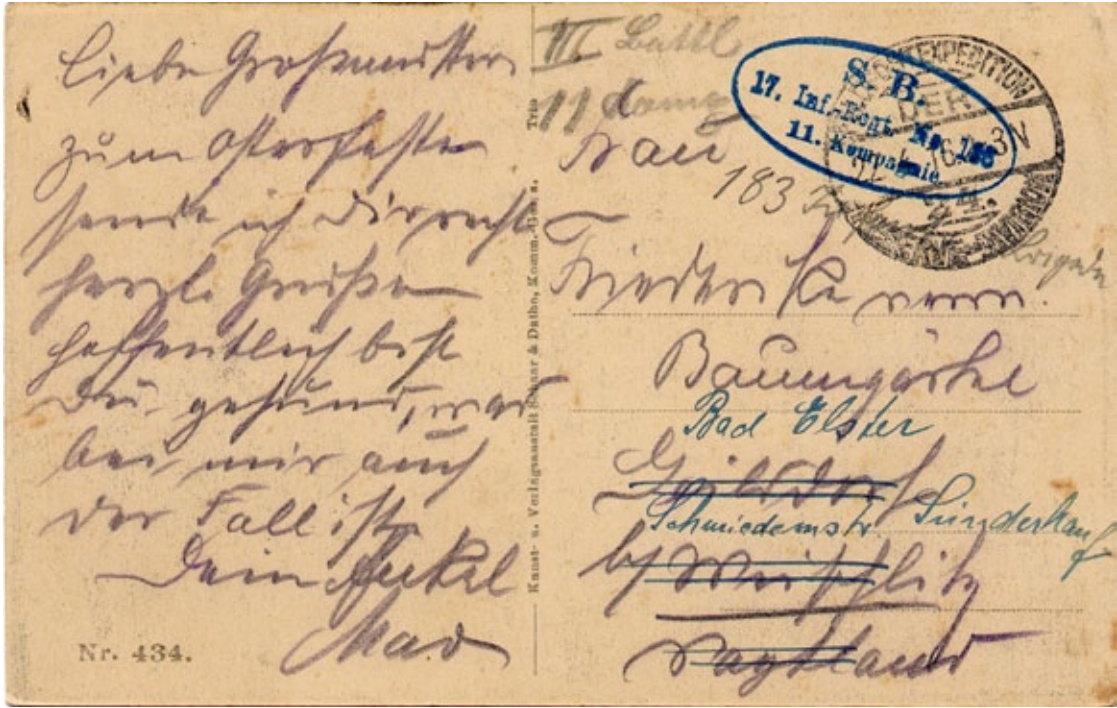 Liebe Großmutter
zum Osterfeste
sende ich Dir recht
herzl. Grüße
hoffentlich bist
Du gesund, was
bei mir auch
der Fall ist.
Dein Enkel
Max
Nr. 434.
Kunst- u. Verlagsanstalt Schaar & Dathe, Komm.-Ges. a. Trier
III Battl
11 Komp
Frau
183
Brigade
S. B.
17. Inf.-Regt. No.
11. Kompagnie
POSTEXPEDITION
DER
Friederike verw.
Baumgärtel
Bad Elster
Geilsdorf
Schmiedemstr. Sünderhauf
b/ Weischlitz
Vogtland